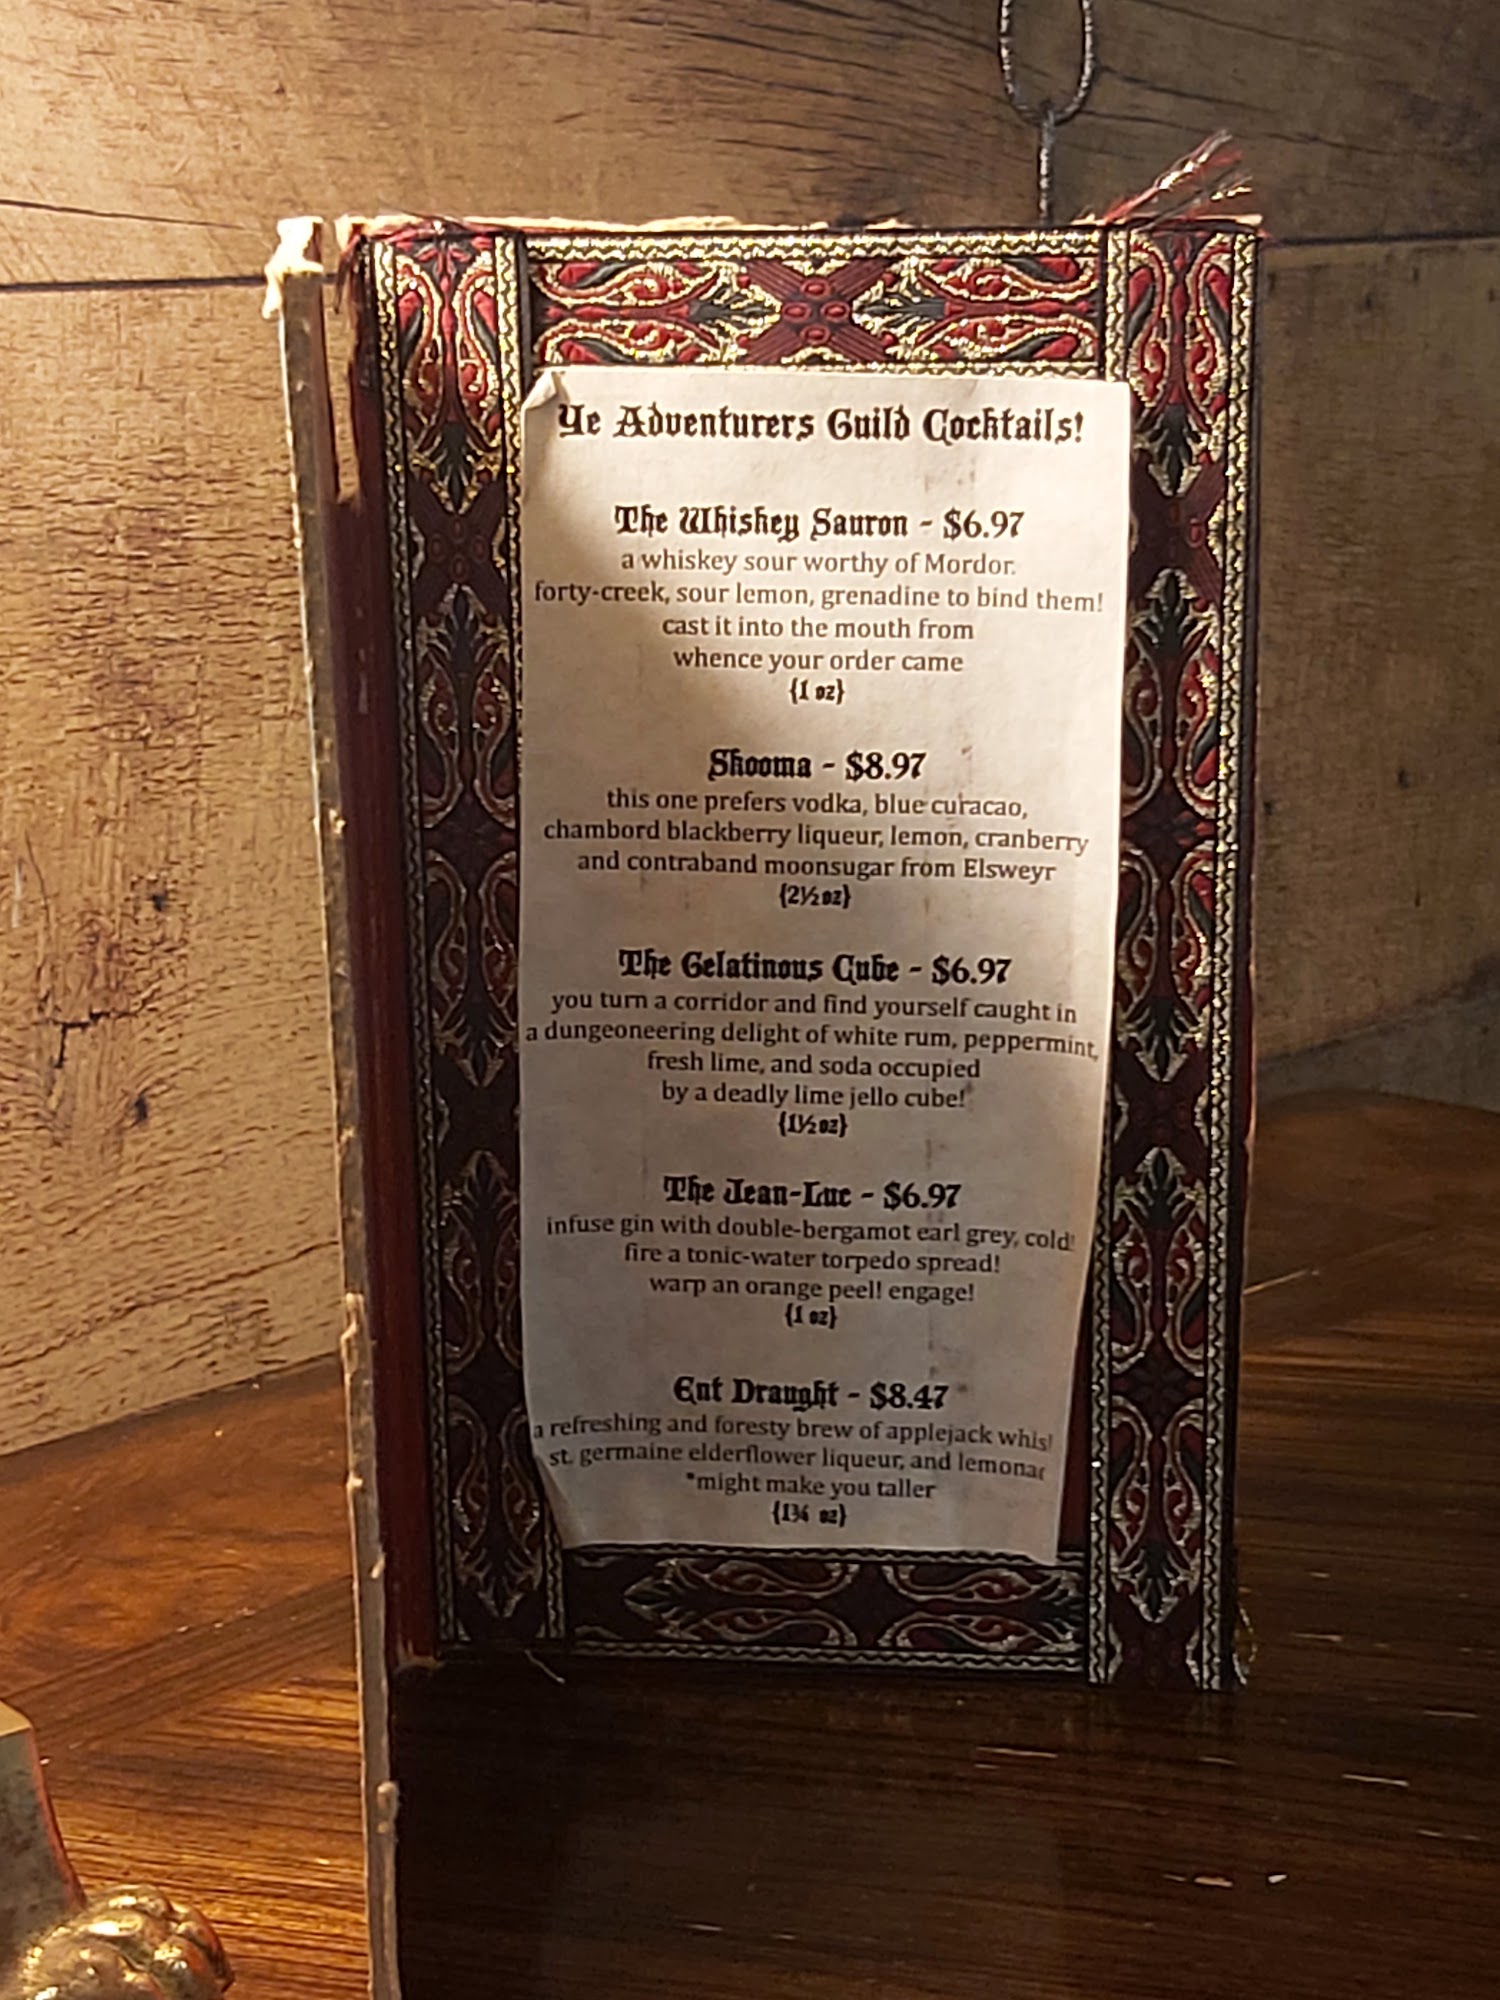 Ye Adventurers Guild Cocktails!
The Whiskey Sauron - $6.97
a whiskey sour worthy of Mordor.
forty-creek, sour lemon, grenadine to bind them!
cast it into the mouth from
whence your order came
{1 oz}
Skooma - $8.97
this one prefers vodka, blue curacao,
chambord blackberry liqueur, lemon, cranberry
and contraband moonsugar from Elsweyr
{2½ oz}
The Gelatinous Cube - $6.97
you turn a corridor and find yourself caught in
a dungeoneering delight of white rum, peppermint,
fresh lime, and soda occupied
by a deadly lime jello cube!
{1½ oz}
The Jean-Luc - $6.97
infuse gin with double-bergamot earl grey, cold!
fire a tonic-water torpedo spread!
warp an orange peel! engage!
{1 oz}
Ent Draught - $8.47
a refreshing and foresty brew of applejack
st. germaine elderflower liqueur, and
*might make you taller
{1¾ oz}